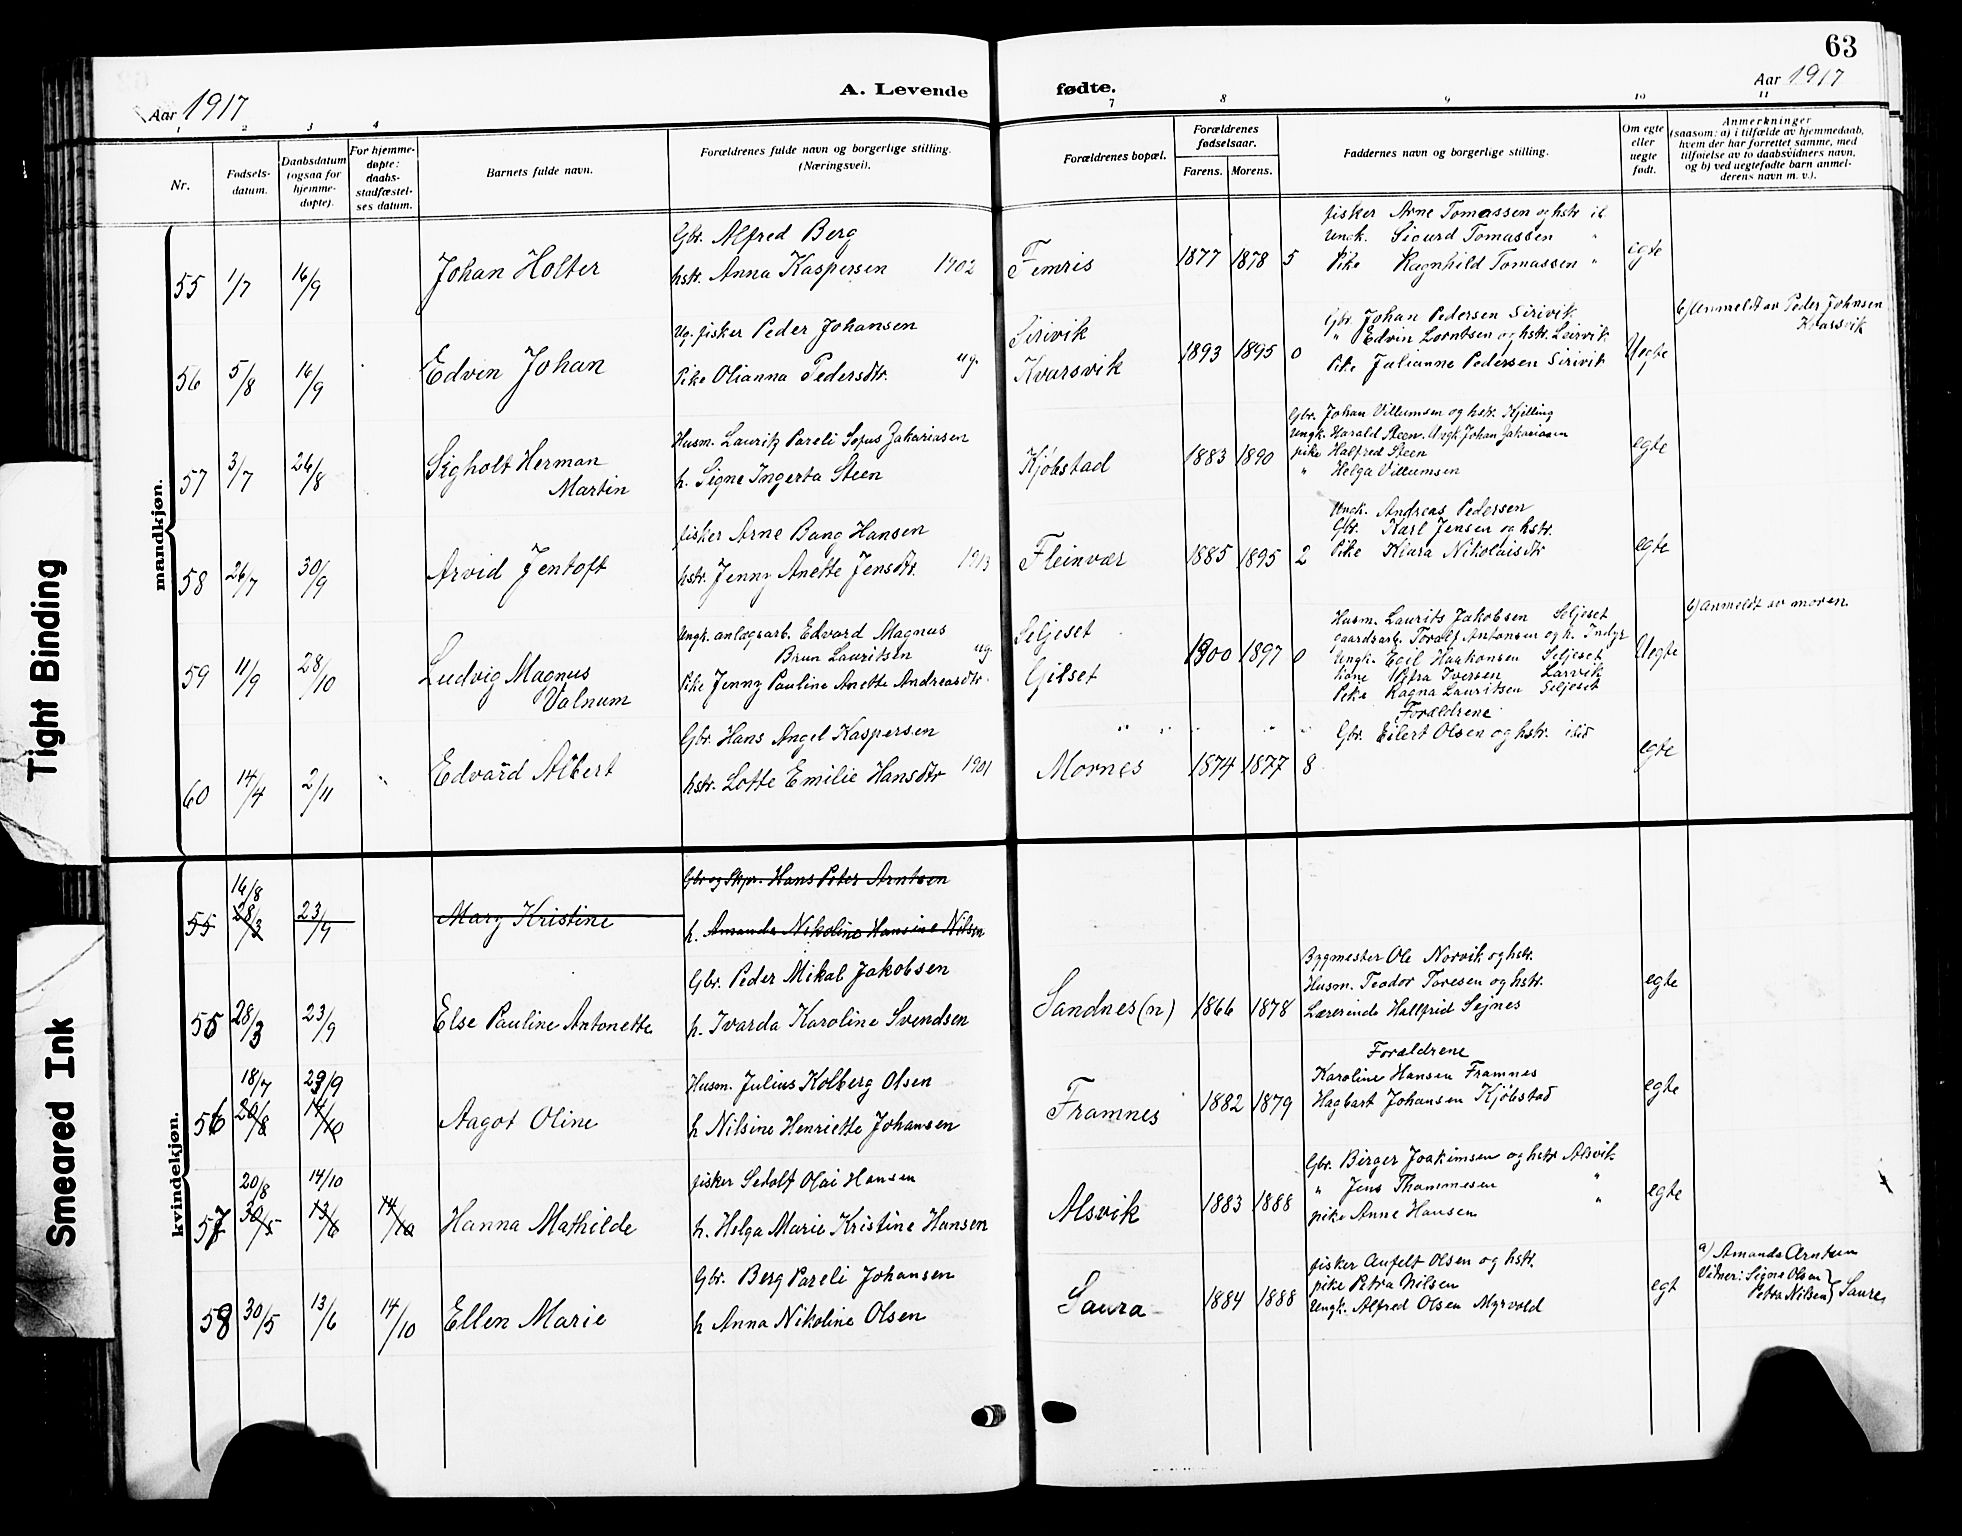 63
Aar 1917
A. Levende
fødte.
Aar 1917
1 2 3 4 7 8 9 10 11
Nr.
Fødsels-
datum.
Daabsdatum
(ogsaa for
hjemme-
døpte).
For hjemme-
døpte:
daabs-
stadfæstel-
ses datum.
Barnets fulde navn.
Forældrenes fulde navn og borgerlige stilling.
(Næringsvei).
Forældrenes bopæl.
Forældrenes
fødselsaar.
Farens. Morens.
Faddernes navn og borgerlige stilling.
Om egte
eller
uegte
født.
Anmerkninger
(saasom: a) i tilfælde av hjemmedaab,
hvem der har forrettet samme, med
tilføielse av to daabsvidners navn,
og b) ved uegtefødte barn anmel-
derens navn m. v.).
mandkjøn.
55 1/7 16/9 Johan Holter
Gbr. Alfred Berg
hstr. Anna Kaspersen 1902
Femris 1877 1878 5
fisker Arne Tomassen og hstr ib.
Ungk. Sigurd Tomassen "
Pike Ragnhild Tomassen "
egte
56 5/8 16/9 Edvin Johan
Ug. fisker Peder Johansen
Pike Olianna Pedersdtr. ug.
Sirivik
Kvarsvik
1893 1895 0
Gbr Johan Pedersen Sirivik
" Edvin Lorntsen og hstr. Leirvik
Pike Julianne Pedersen Sirivik
Uegte
b) Anmeldt av Peder Johnsen
Kvarsvik
57 3/7 26/8 Sigholt Herman
Martin
Husm. Lauritz Pareli Sofus Zakariasen
h. Signe Ingerta Steen
Kjøbstad 1883 1890
Gbr. Johan Villumsen og hstr. Kjelling
Ungk. Harald Steen. Ungk Johan Zakariasen
pike Halfrid Steen
" Helga Villumsen
egte
58 26/7 30/9 Arvid Jentoft
fisker Arne Bang Hansen
hstr. Jenny Anette Jensdtr. 1913
Fleinvær 1885 1895 2
Ungk. Andreas Pedersen
Gbr. Karl Jensen og hstr.
Pike Klara Nikolaisdtr
egte
59 11/9 28/10 Ludvig Magnus
Valnum
Ungk. anlægsarb. Edvard Magnus
Brun Lauritsen ug
Pike Jenny Pauline Anette Andreasdtr.
Seljeset
Gilset
1900 1897 0
Husm. Laurits Jakobsen Seljeset
Gaardsarb. Toralf Antonsen og h. Indyr
Ungk. Egil Haakonsen Seljeset
Kone Petra Iversen Larvik
Pike Ragna Lauritsen Seljeset
Uegte
b) anmeldt av moren.
60 14/4 2/11 " Edvard Albert
Gbr. Hans Angel Kaspersen
hstr. Lotte Emilie Hansdtr 1901
Mornes 1874 1877 8
Forældrene
Gbr. Eilert Olsen og hstr. ibid
egte
kvindekjøn.
55 16/8 28/3 23/9 Mary Kristine
Gbr og Skpr. Hans Peter Arntsen
h. Amanda Nikoline Hansine Nilsen
55 28/3 23/9 Else Pauline Antonette
Gbr. Peder Mikal Jakobsen
h. Ivarda Karoline Svendsen
Sandnes (n) 1866 1878
Bygmester Ole Norvik og hstr.
Husm. Teodor Toresen og hstr.
Lærerinde Hallfrid Sejnes
egte
56 18/7 20/8 23/9 14/10 Aagot Oline
Husm. Julius Kolberg Olsen
h Nilsine Henriette Johansen
Framnes 1882 1879
Forældrene
Karoline Hansen Framnes
Hagbart Johansen Kjøbstad
egte
57 20/8 30/5 14/10 13/6 14/10 Hanna Mathilde
fisker Sedolf Olai Hansen
h. Helga Marie Kristine Hansen
Alsvik 1883 1888
Gbr. Birger Joakimsen og hstr Alsvik
" Jens Thommesen "
pike Anne Hansen "
egte
58 30/5 13/6 14/10 Ellen Marie
Gbr. Berg Pareli Johansen
h Anna Nikoline Olsen
Saura 1884 1888
fisker Anfelt Olsen og hstr.
pike Petra Nilsen
Ungk. Alfred Olsen Myrvold
egt
a) Amanda Arntsen
Vidner: Signe Olsen
Petra Nilsen } Saura
Tight Binding
Smeared Ink